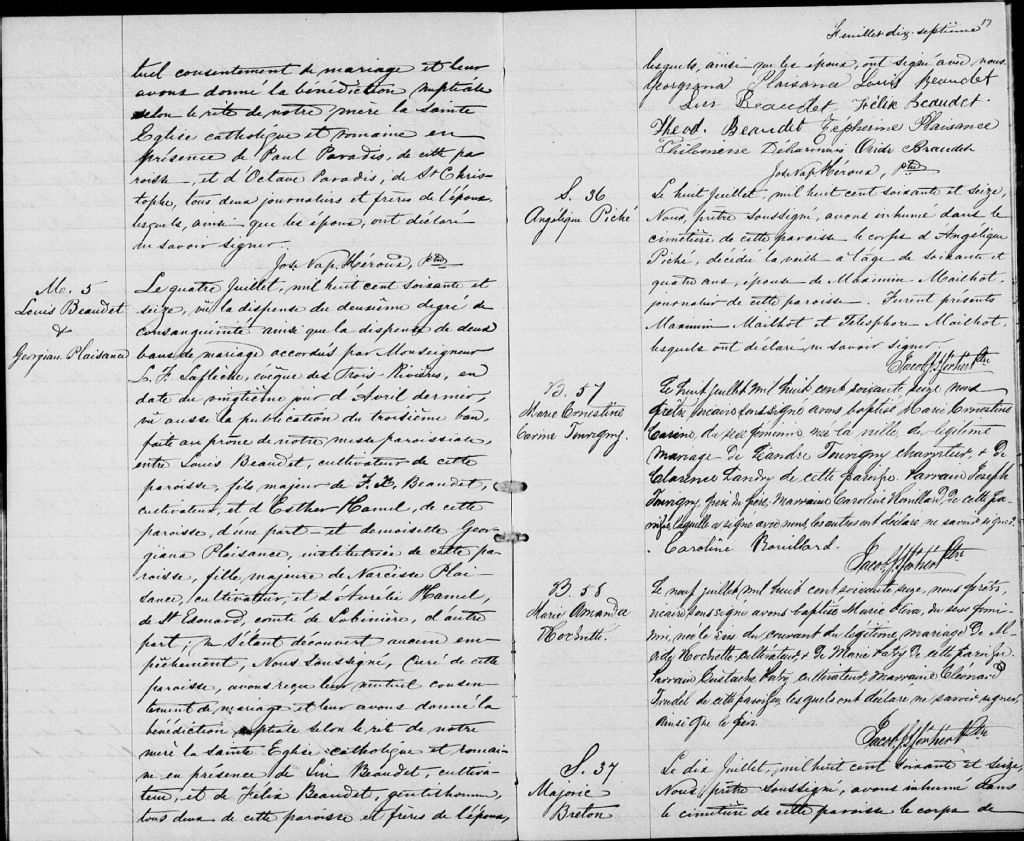 tuel consentement de mariage et leur
avons donné la bénédiction nuptiale
selon le rite de notre mère la sainte
Eglise catholique et romaine en
présence de Paul Paradis, de cette pa
roisse, et d'Octave Paradis, de St Chris-
tophe, tous deux journaliers et frères de l'époux,
lesquels, ainsi que les époux, ont déclaré
ne savoir signer.
Jos. Nap. Héroux, Ptre
M. 5
Louis Beaudet
&
Georgian Plaisance
Le quatre Juillet, mil huit cent soixante et
seize, vû la dispense du deuxième degré de
consanguinité ainsi que la dispense de deux
bans de mariage accordés par Monseigneur
L. F. Laflèche, évêque des Trois-Rivières, en
date du vingtième jour d'Avril dernier,
vû aussi la publication du troisième ban,
faite au prône de notre messe paroissiale,
entre Louis Beaudet, cultivateur de cette
paroisse, fils majeur de F. X. Beaudet,
cultivateur, et d'Esther Hamel, de cette
paroisse, d'une part - et demoiselle Geor-
giana Plaisance, institutrice de cette pa-
roisse, fille majeure de Narcisse Plai-
sance, cultivateur, et d'Aurelie Hamel,
de St Edouard, comté de Lobinière, d'autre
part; n s'étant découvert aucun em-
pêchement, Nous soussigné, Curé de cette
paroisse, avons reçu leur mutuel consen-
tement de mariage et leur avons donné la
bénédiction nuptiale selon le rit de notre
mère la sainte Eglise catholique et romai-
ne en présence de Beaudet, cultiva-
teur, et de Felix Beaudet, gentilhomme,
tous deux de cette paroisse et frères de l'époux,
Feuillet dix-septième 17
lesquels, ainsi que les époux, ont signé avec nous.
Georgiana Plaisance Louis Beaudet
Beaudet Félix Beaudet.
Theod. Beaudet Zépherine Plaisance
Philomene Désharnais Ovide Beaudet
Jos. Nap. Héroux, Ptre
S. 36
Angélique Piché
Le huit Juillet, mil huit cent soixante et seize,
Nous, prêtre soussigné, avons inhumé dans le
cimetière de cette paroisse le corps d'Angélique
Piché, décédée la veille à l'âge de soixante et
quatre ans, épouse de Maximin Mailhot,
journalier de cette paroisse. Furent présents
Maximin Mailhot et Télesphore Mailhot,
lesquels ont déclaré ne savoir signer.
Ptre
B. 57
Marie Ernestine
Carine Tourigny.
Le huit juillet mil huit cent soixante, seize nous
prêtre vicaire soussigné avons baptisé Marie Ernestine
Carine, du sexe féminin née la veille, du légitime
mariage de Léandre Tourigny charpentier, & de
Clarence Landry de cette paroisse. Parrain Joseph
Tourigny frère du père, marraine Caroline Rouillard, de cette pa-
roisse, laquelle a signé avec nous, les autres ont déclaré ne savoir signer.
Caroline Rouillard.
Ptre
B. 58
Marie Amanda
Rochette.
Le neuf juillet, mil huit cent soixante seize, nous prêtre,
vicaire soussigné avons baptisé Marie du sexe fémi-
nin, née le six du courant du légitime mariage de
Rochette, cultivateur, & de Marie de cette paroisse.
Parrain Eustache cultivateur, marraine Eléonard
Trudel de cette paroisse, lesquels ont déclaré ne savoir signer,
ainsi que le père.
Ptre
S. 37
Majorie
Breton
Le dix Juillet, mil huit cent soixante et seize,
Nous, prêtre soussigné, avons inhumé dans
le cimetière de cette paroisse le corps de